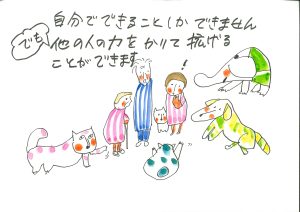 自分でできることしかできません
でも 他の人の力をかりて拡げる
ことができます
!